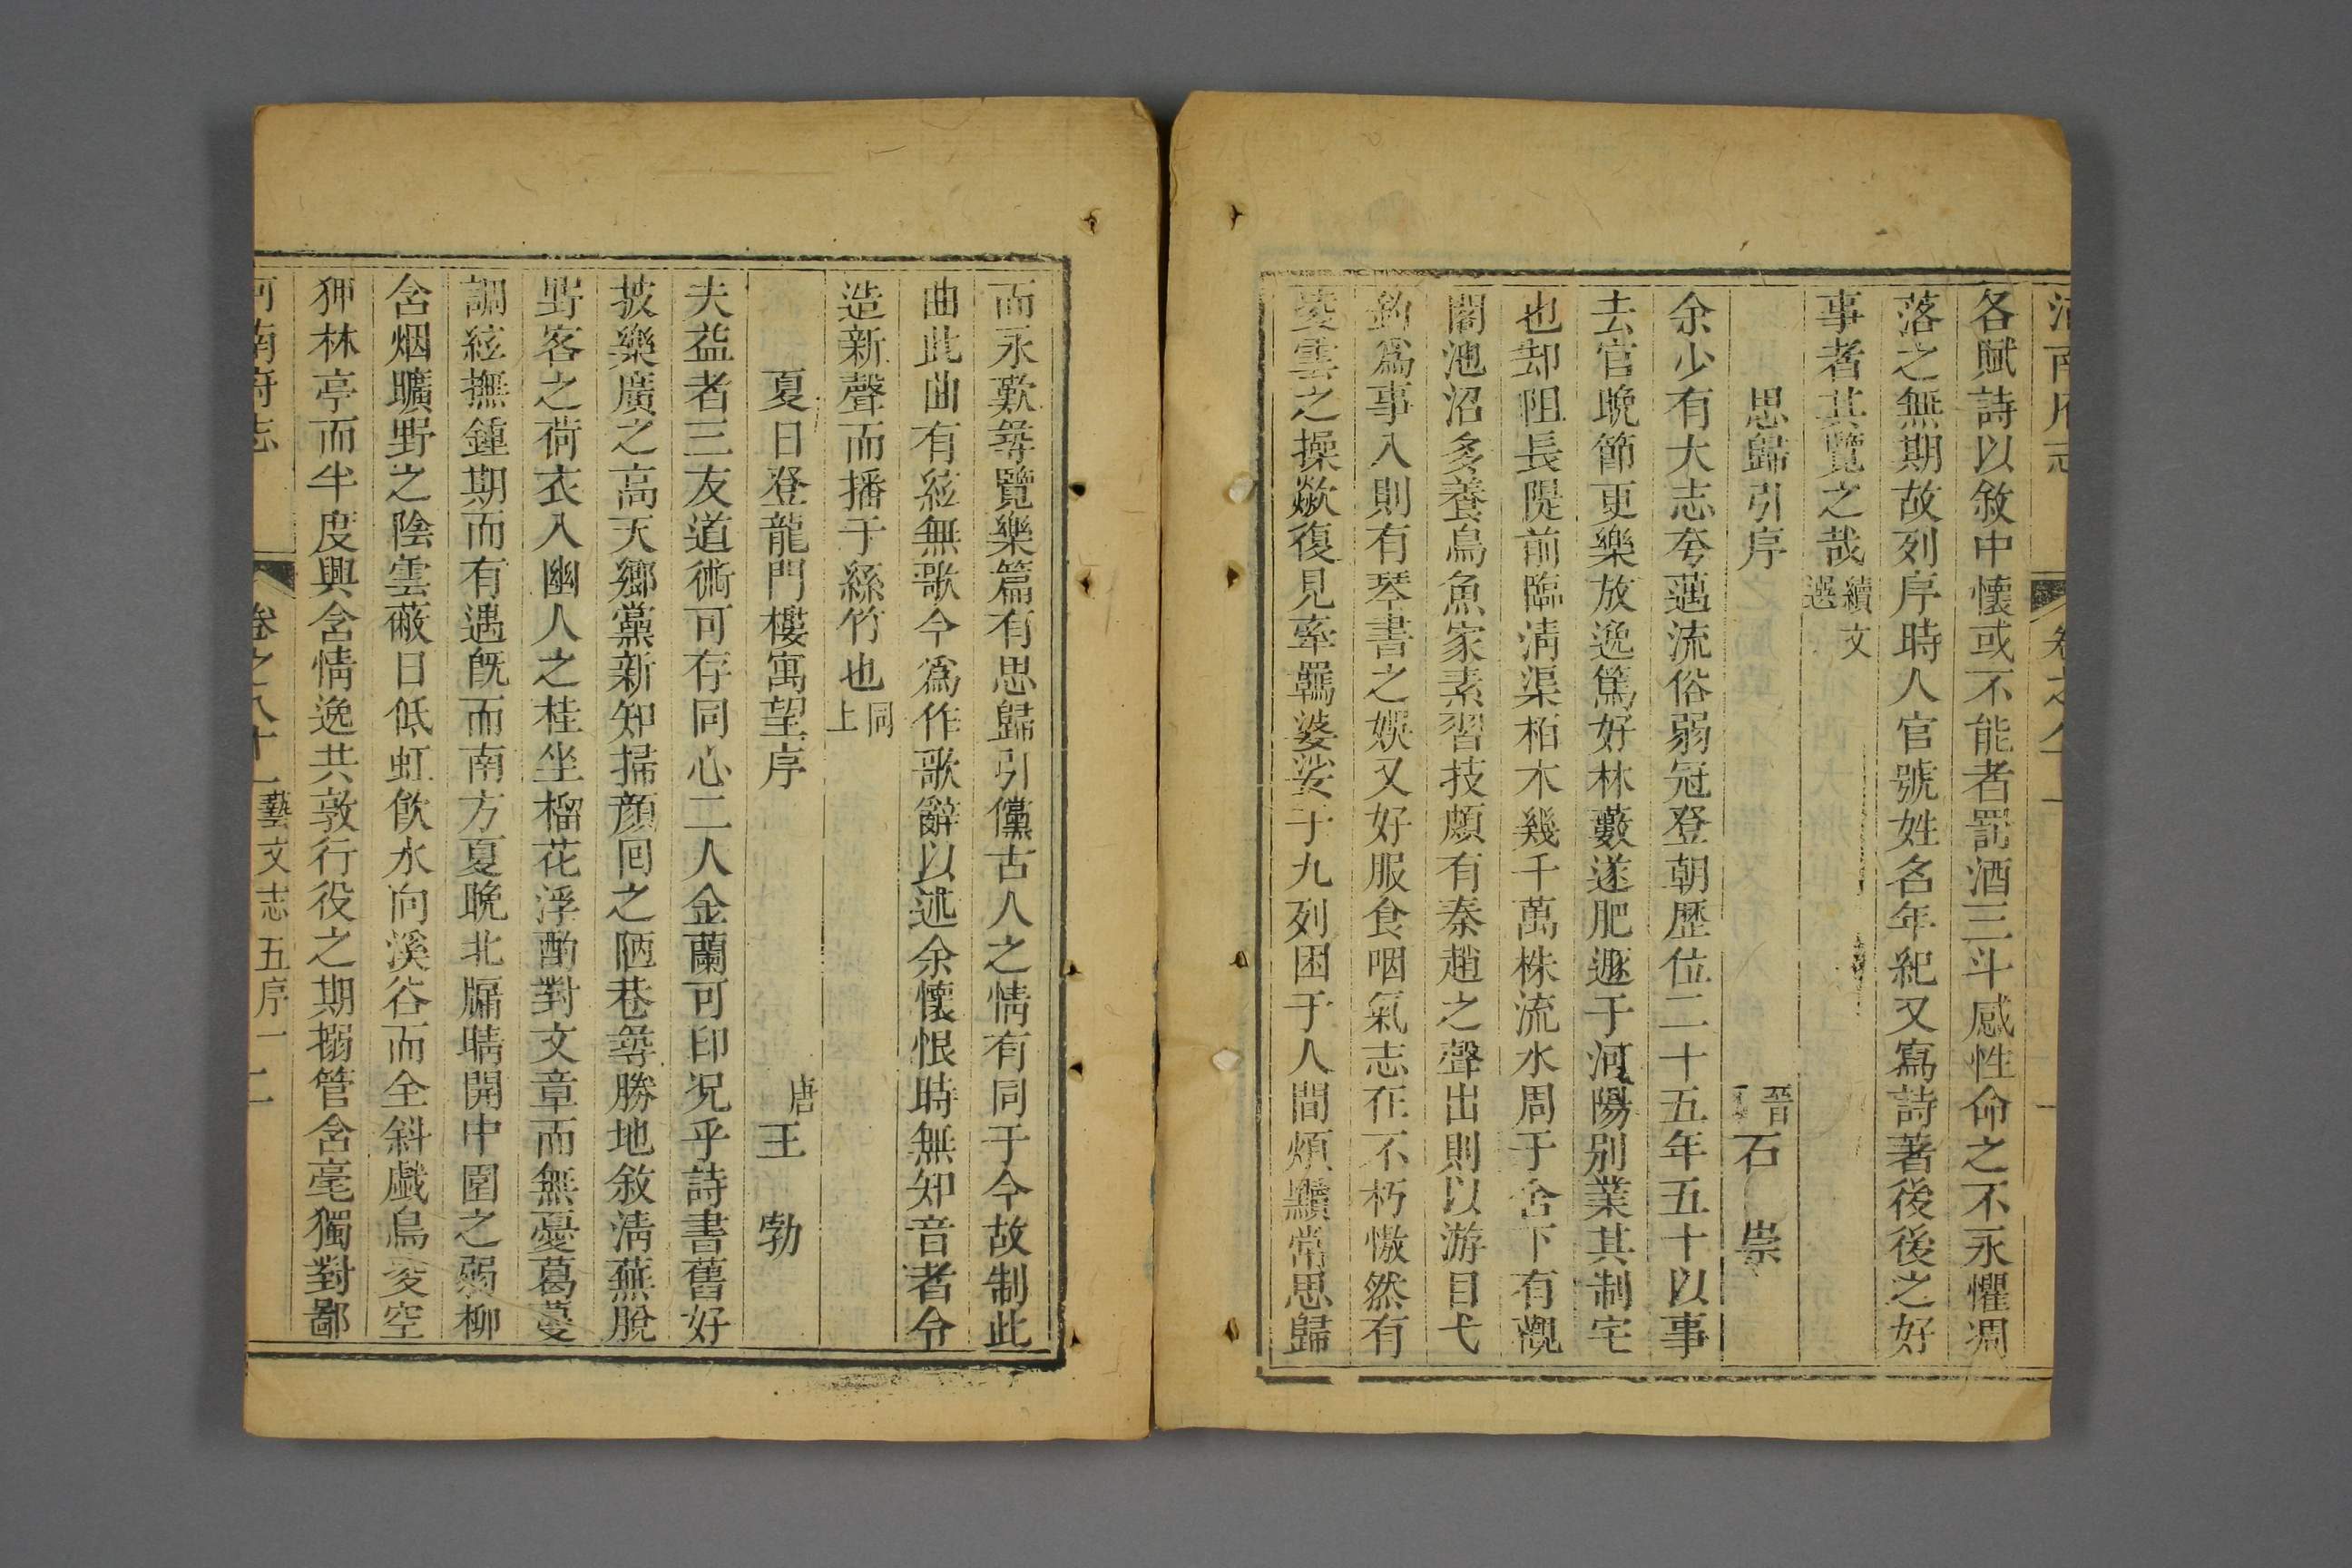 河南府志 卷之八十一
各賦詩以敘中懷或不能者罰酒三斗感性命之不永懼凋
落之無期故列序時人官號姓名年紀又寫詩著後後之好
事者其覽之哉續文選
思歸引序 晉石崇
余少有大志夸邁流俗弱冠登朝歷位二十五年五十以事
去官晚節更樂放逸篤好林藪遂肥遯于河陽別業其制宅
也却阻長隄前臨淸渠栢木幾千萬株流水周于舍下有觀
閣池沼多養鳥魚家素習技頗有秦趙之聲出則以游目弋
釣為事入則有琴書之娛又好服食咽氣志在不朽慠然有
凌雲之操歘復見牽羈婆娑于九列困于人間煩黷常思歸
而永歎㝷覽樂篇有思歸引儻古人之情有同于今故制此
曲此曲有絃無歌今為作歌辭以述余懷恨時無知音者令
造新聲而播于絲竹也同上
夏日登龍門樓寓望序 唐王勃
夫益者三友道術可存同心二人金蘭可印況乎詩書舊好
披樂廣之高天鄉黨新知掃顏回之陋巷㝷勝地敘淸蕪脫
野客之荷衣入幽人之桂坐榴花浮酌對文章而無憂葛蔓
調絃撫鍾期而有遇旣而南方夏晚北牖晴開中園之弱柳
含烟曠野之陰雲蔽日低虹飮水向溪谷而全斜戲鳥凌空
狎林亭而半度興含情逸共敦行役之期搦管含毫獨對鄙
河南府志 卷之八十一 藝文志五序一 二